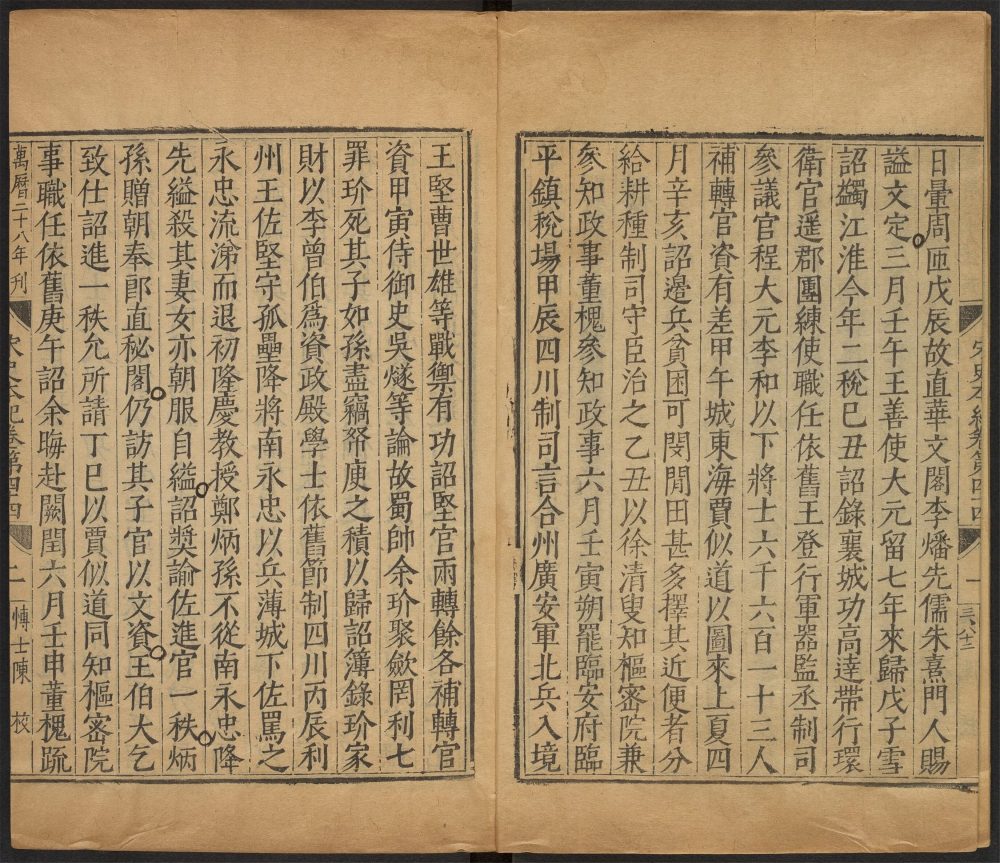 宋史本紀卷第四十四
一
日暈周匝戊辰故直華文閣李燔先儒朱熹門人賜
謚文定三月壬午王善使大元留七年來歸戊子雪
詔蠲江淮今年二稅巳丑詔錄襄城功高達帶行環
衛官遥郡團練使職任依舊王登行軍器監丞制司
參議官程大元李和以下將士六千六百一十三人
補轉官資有差甲午城東海賈似道以圖來上夏四
月辛亥詔邊兵貧困可閔閒田甚多擇其近便者分
給耕種制司守臣治之乙丑以徐清叟知樞密院兼
參知政事董槐參知政事六月壬寅朔罷臨安府臨
平鎮稅場甲辰四川制司言合州廣安軍北兵入境
王堅曹世雄等戰禦有功詔堅官兩轉餘各補轉官
資甲寅侍御史吳燧等論故蜀帥余玠聚歛罔利七
罪玠死其子如孫盡竊帑庾之積以歸詔簿錄玠家
財以李曾伯爲資政殿學士依舊節制四川丙辰利
州王佐堅守孤壘降將南永忠以兵薄城下佐罵之
永忠流涕而退初隆慶教授鄭炳孫不從南永忠降
先縊殺其妻女亦朝服自縊詔奬諭佐進官一秩炳
孫贈朝奉郎直秘閣仍訪其子官以文資王伯大乞
致仕詔進一秩允所請丁巳以賈似道同知樞密院
事職任依舊庚午詔余晦赴闕閏六月壬申董槐疏
萬曆二十八年刊
宋史本紀卷第四十四
二
博士陳 校